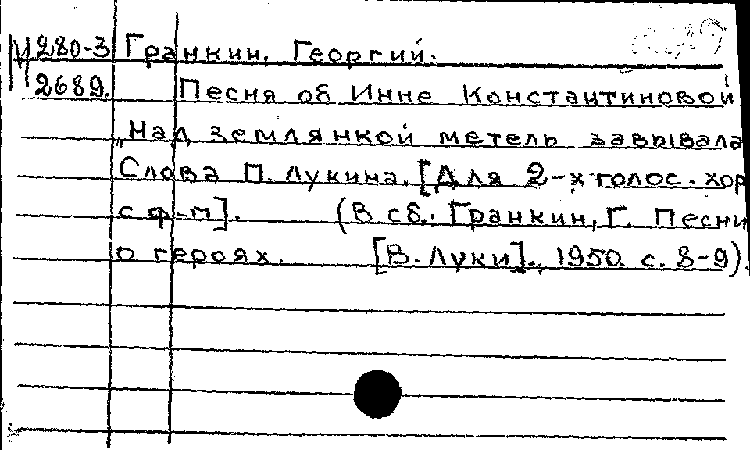 М 280-3 Гранкин, Георгий.
2689. Песня об Инне Константиновой
„Над землянкой метель завывала
Слова П. Лукина. [Для 2-х голос. хор
с ф-п]. (В сб.: Гранкин, Г. Песни
о героях. [В. Луки]., 1950. с. 8-9).